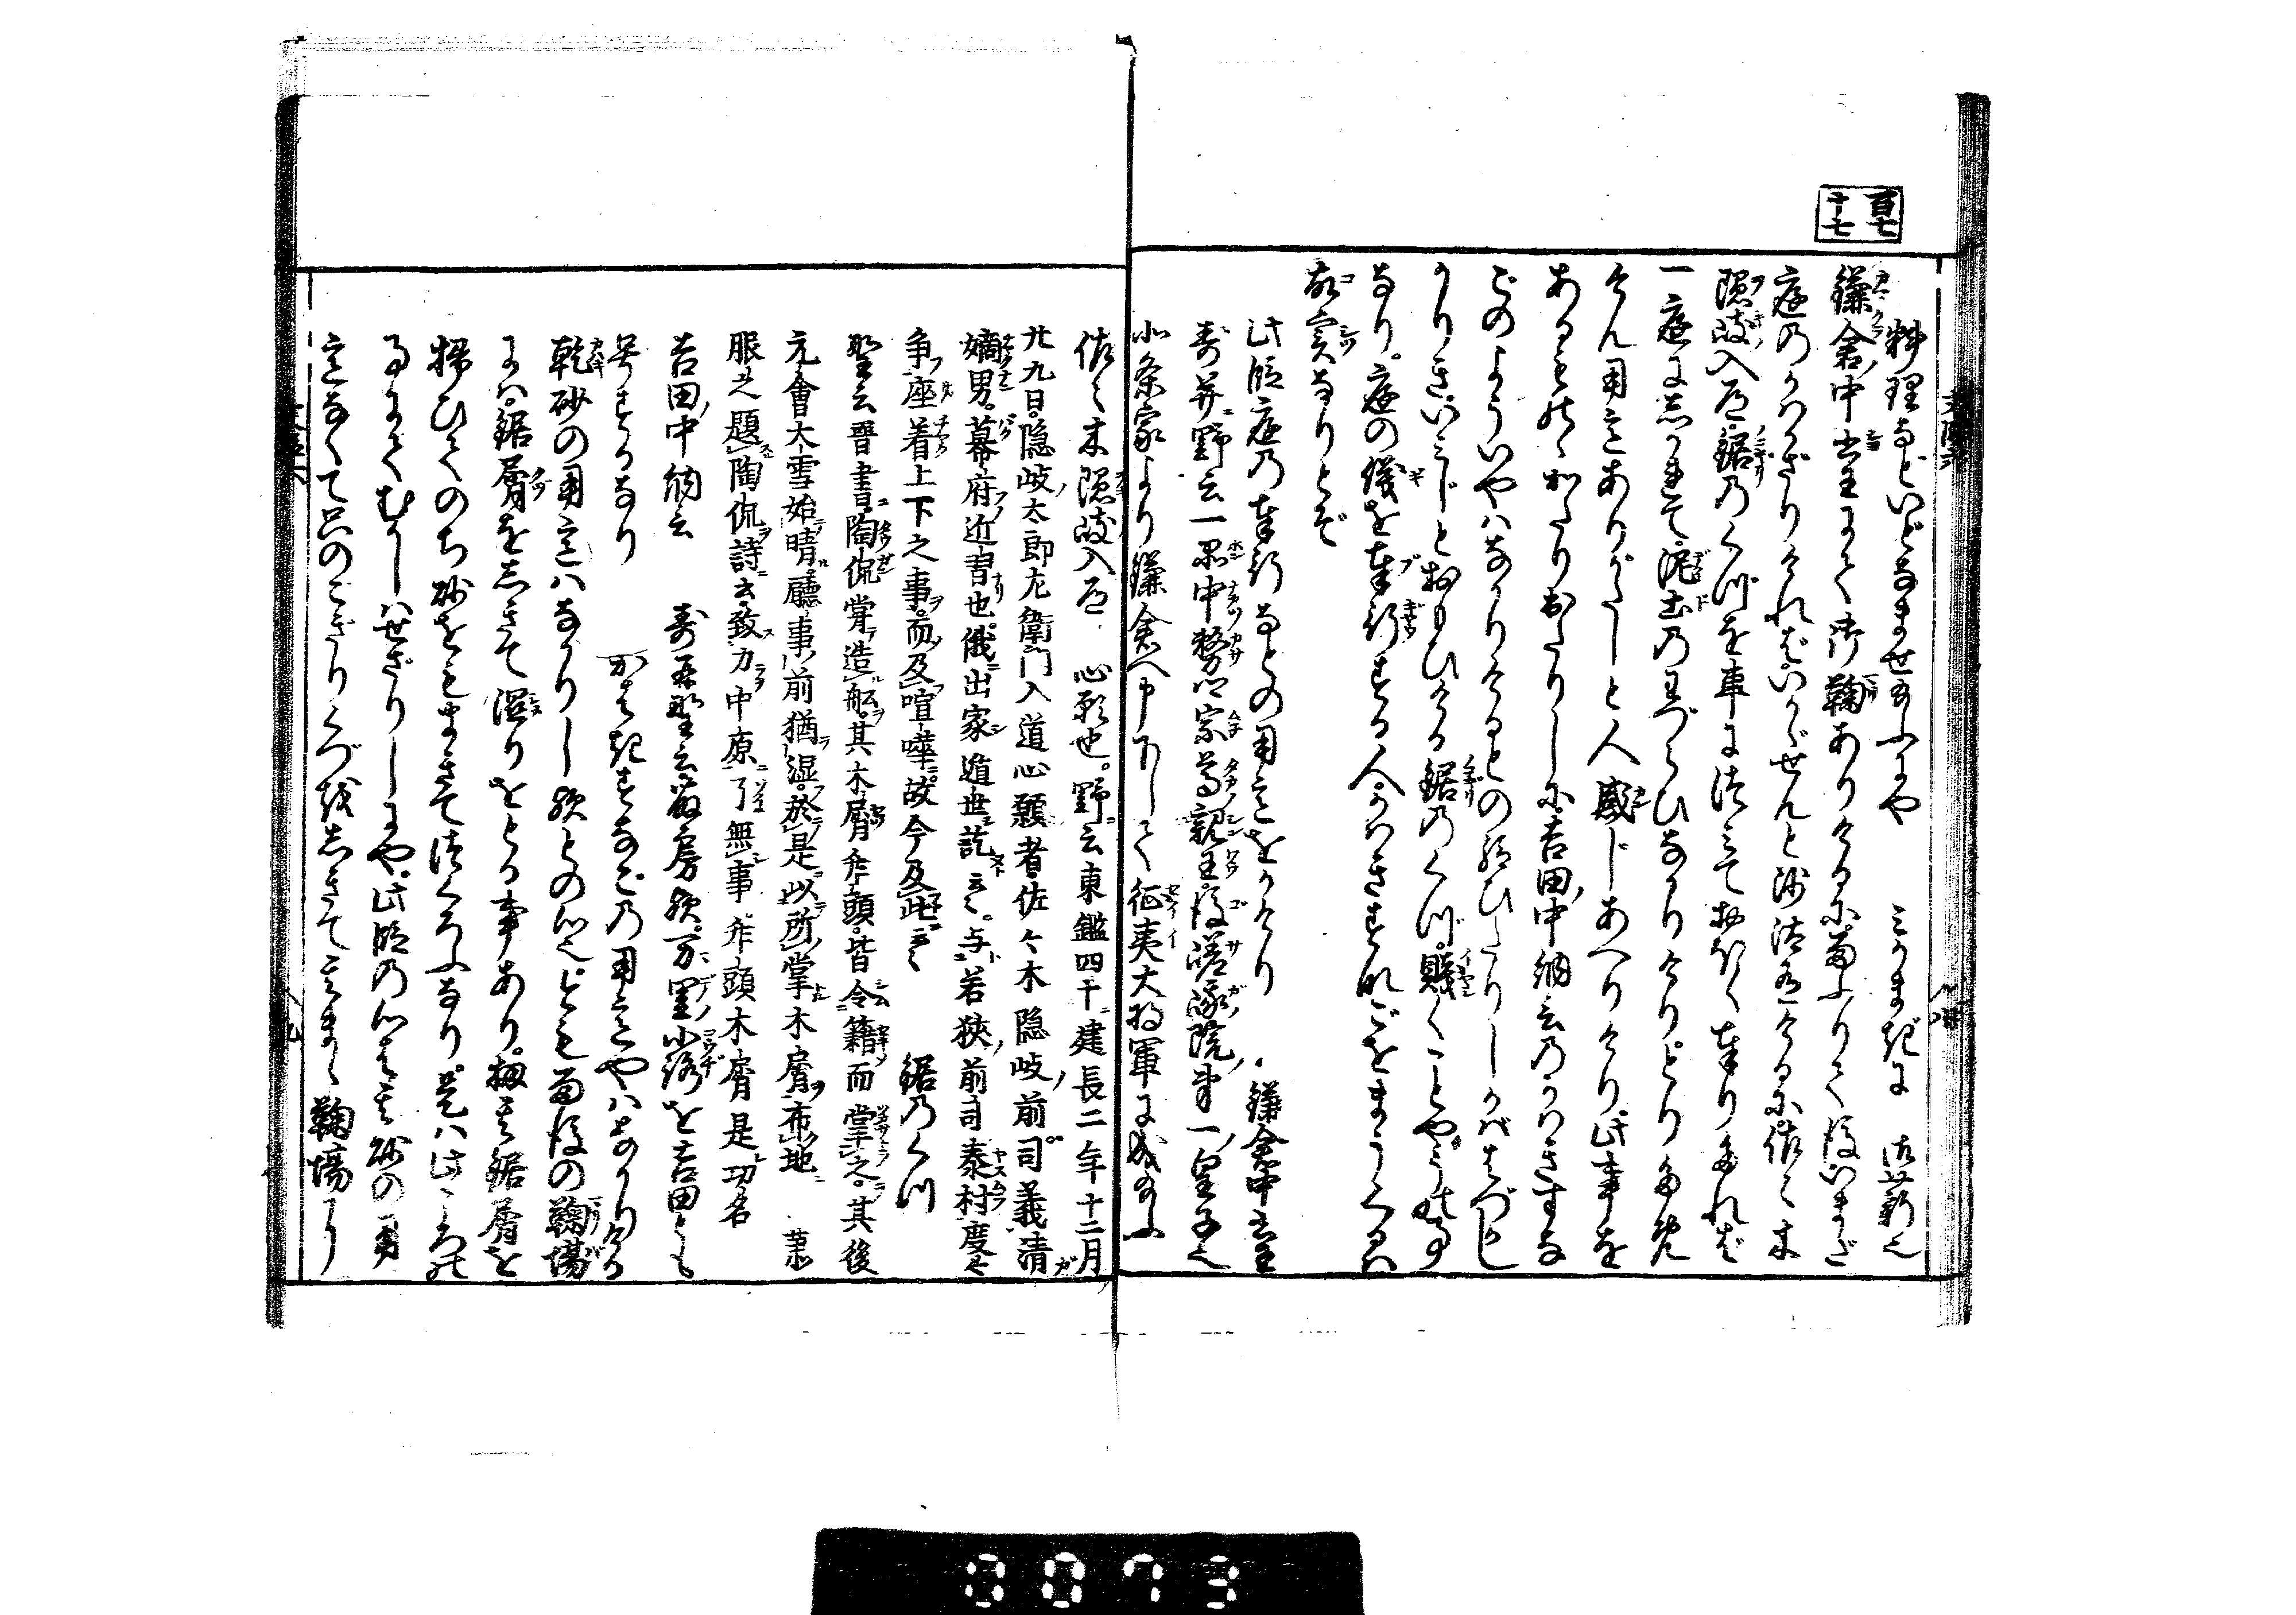 百七
十七
料理などいどませ給ふにや　みかまきに　御薪也
鎌倉中書王にて御鞠ありけるに雨ふりて後いまだ
庭のかはかざりければいかゞせんと沙汰有けるに佐々木
隠岐入道鋸のくづを車につみておほく奉りたれば
一庭にしかれて泥土のわづらひなかりけりとりため
けん用意ありがたしと人感じあへりけり此事を
ある者のかたり出たりしに吉田中納言のかはきすな
ごのよういやはなかりけるとの給ひたりしかばはづかし
かりきいみじとおもひける鋸のくづ賤くことやうの事
なり庭の儀を奉行する人かはきすなごをまうくるは
故実なりとぞ
此段庭の奉行などの用意をかけり　鎌倉中書王
寿并野云一品中務卿宗尊親王後嵯峨院第一皇子也
北条家より鎌倉へ申下して征夷大将軍に成給ふ
佐々木隠岐入道　心願也。野云東鑑四十建長二年十二月
廿九日。隠岐太郎左衛門入道心願者佐々木隠岐前司義清
嫡男。幕府近習也。俄出家遁世訖云々。与若狭前司泰村度々
争座着上下之事。而及喧嘩。故今及此云々　鋸のくづ
盤云晋書陶侃嘗造船。其木屑竹頭。皆令籍而掌之。其後
元會大雪始晴。廳事前猶湿。於是以所掌木屑布地　葉
服之題陶侃詩云致力中原了無事竹頭木屑是功名
吉田中納言　寿并盤云藤房歟。万里小路を吉田とも
号するなり　かはきすなごの用意やはなかりける
乾砂の用意はなかりし歟との心也されども雨後の鞠場
には。鋸屑をしきて湿りをとる事あり。扨其鋸屑を
掃ひてのち砂をもまきてつくろふなり。是は此ころの
事にてむかしはせざりしにや。此段の心は其砂の用
意なくて只のこぎりくづ計しきて其まゝ鞠場より